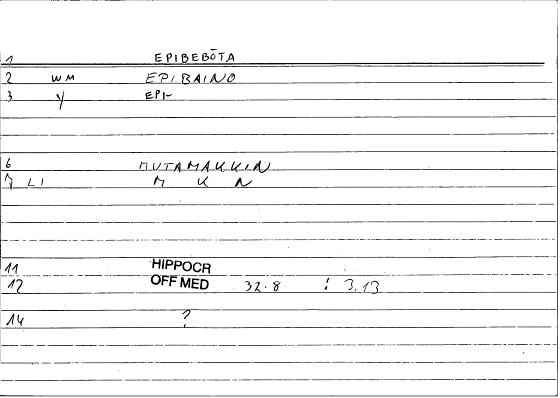 1 EPIBEBŌTA
2 WM EPIBAINO
3 Y EPI-
6 MUTAMAKKIN
7 LI M K N
11 HIPPOCR
12 OFF MED 32.8 : 3.13
14 ?